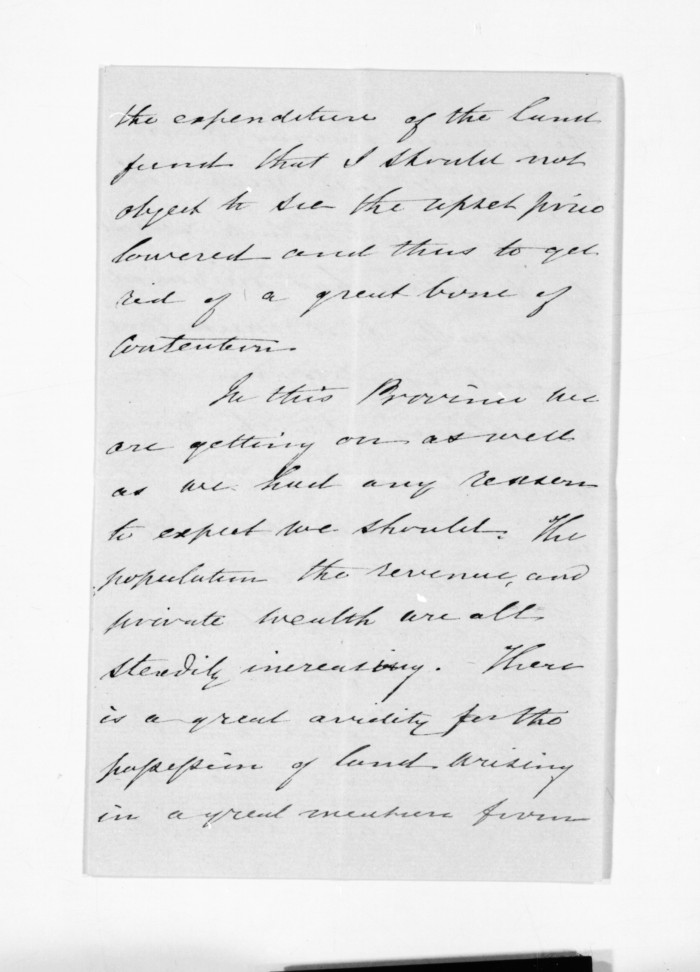 the expenditure of the land
fund that I should not
object to see the upset price
lowered and thus to get
rid of a great bone of
contention.
In this Province we
are getting on as well
as we had any reason
to expect we should. The
population the revenue, and
private wealth are all
steadily increasing. There
is a great avidity for the
possession of land arising
in a great measure from